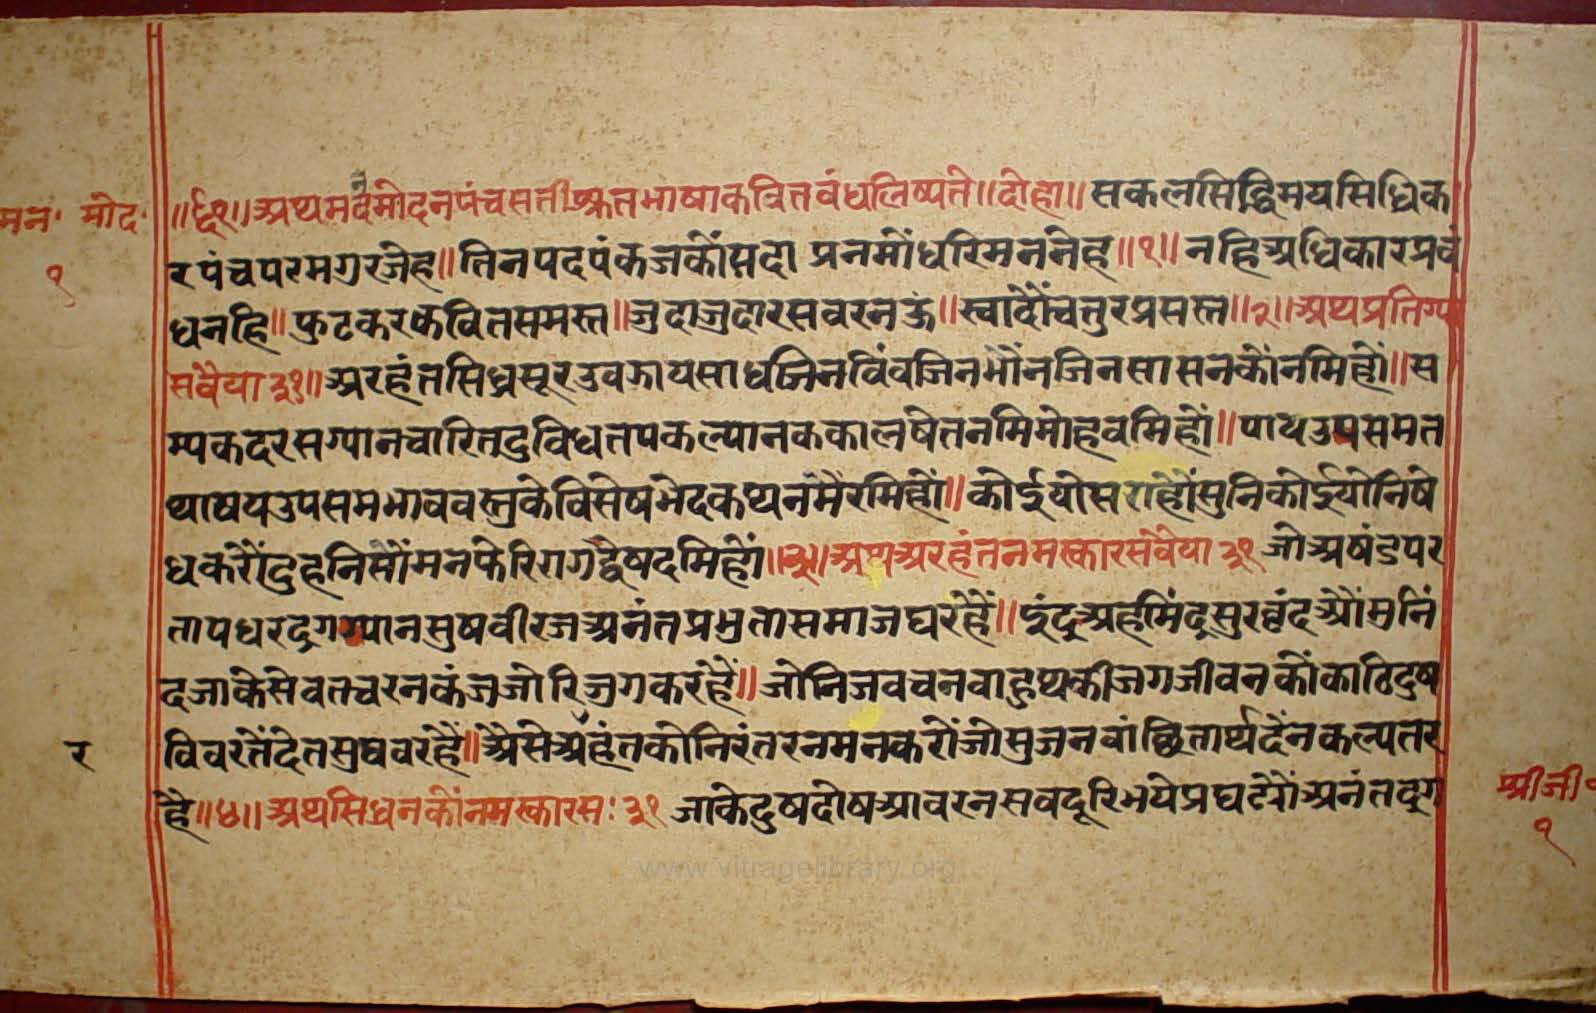 मन॰ मोद॰
१
॥६०॥अथ मनमोदन पंच सती कृत भाषा कवित्त बंध लिष्यते॥दोहा॥ सकलसिद्धिमयसिधिक
रपंचपरमगुरजेह॥तिनपदपंकजकौंसदा प्रनमौंधरिमननेह॥१॥ नहिअधिकारप्रवं
धनहि॥फुटकरकवितसमस्त॥जुदाजुदारसवरनऊं॥स्वादौंचतुरप्रसस्त॥२॥अथप्रतिग्या
सवैया ३१॥अरहंतसिधसूरउवझायसाधजिनविंवजिनभौंनजिनसासनकौंनमिहौं॥स
म्यकदरसग्यानचारितदुविधतपकल्यानककालषेतनमिमोहवमिहौं॥पायउपसमत
थाषयउपसमभाववस्तुकेविसेषभेदकथनमैरमिहौं॥कोईयोसराहौसुनिकोईयोनिषे
धकरौंदुहनिसौंमनफेरिरागद्वेषदमिहौं॥३॥अथअरहंतनमस्कारसवैया ३१ जोअषंडपर
तापधरदृगग्यानसुषवीरजअनंतप्रभुतासमाजघरहैं॥इंद्रअहमिंद्रसुरवृंदऔमुनिं
दजाकेसेवतचरनकंजजोरिजुगकरहैं॥जोनिजवचनवाहुथकीजगजीवनकौंकाढिदुष
विवरतेंदेतसुषवरहैं॥अैसेअर्हंतकोनिरंतरनमनकरोंजोसुजनवांछितार्थदेंनकल्पतर
र
है॥४॥अथसिधनकौंनमस्कारस: ३१ जाकेदुषदोषआवरनसवदूरिभयेप्रघटेरौंअनंतदृग
श्रीजी
१
www.vitragelibrary.org